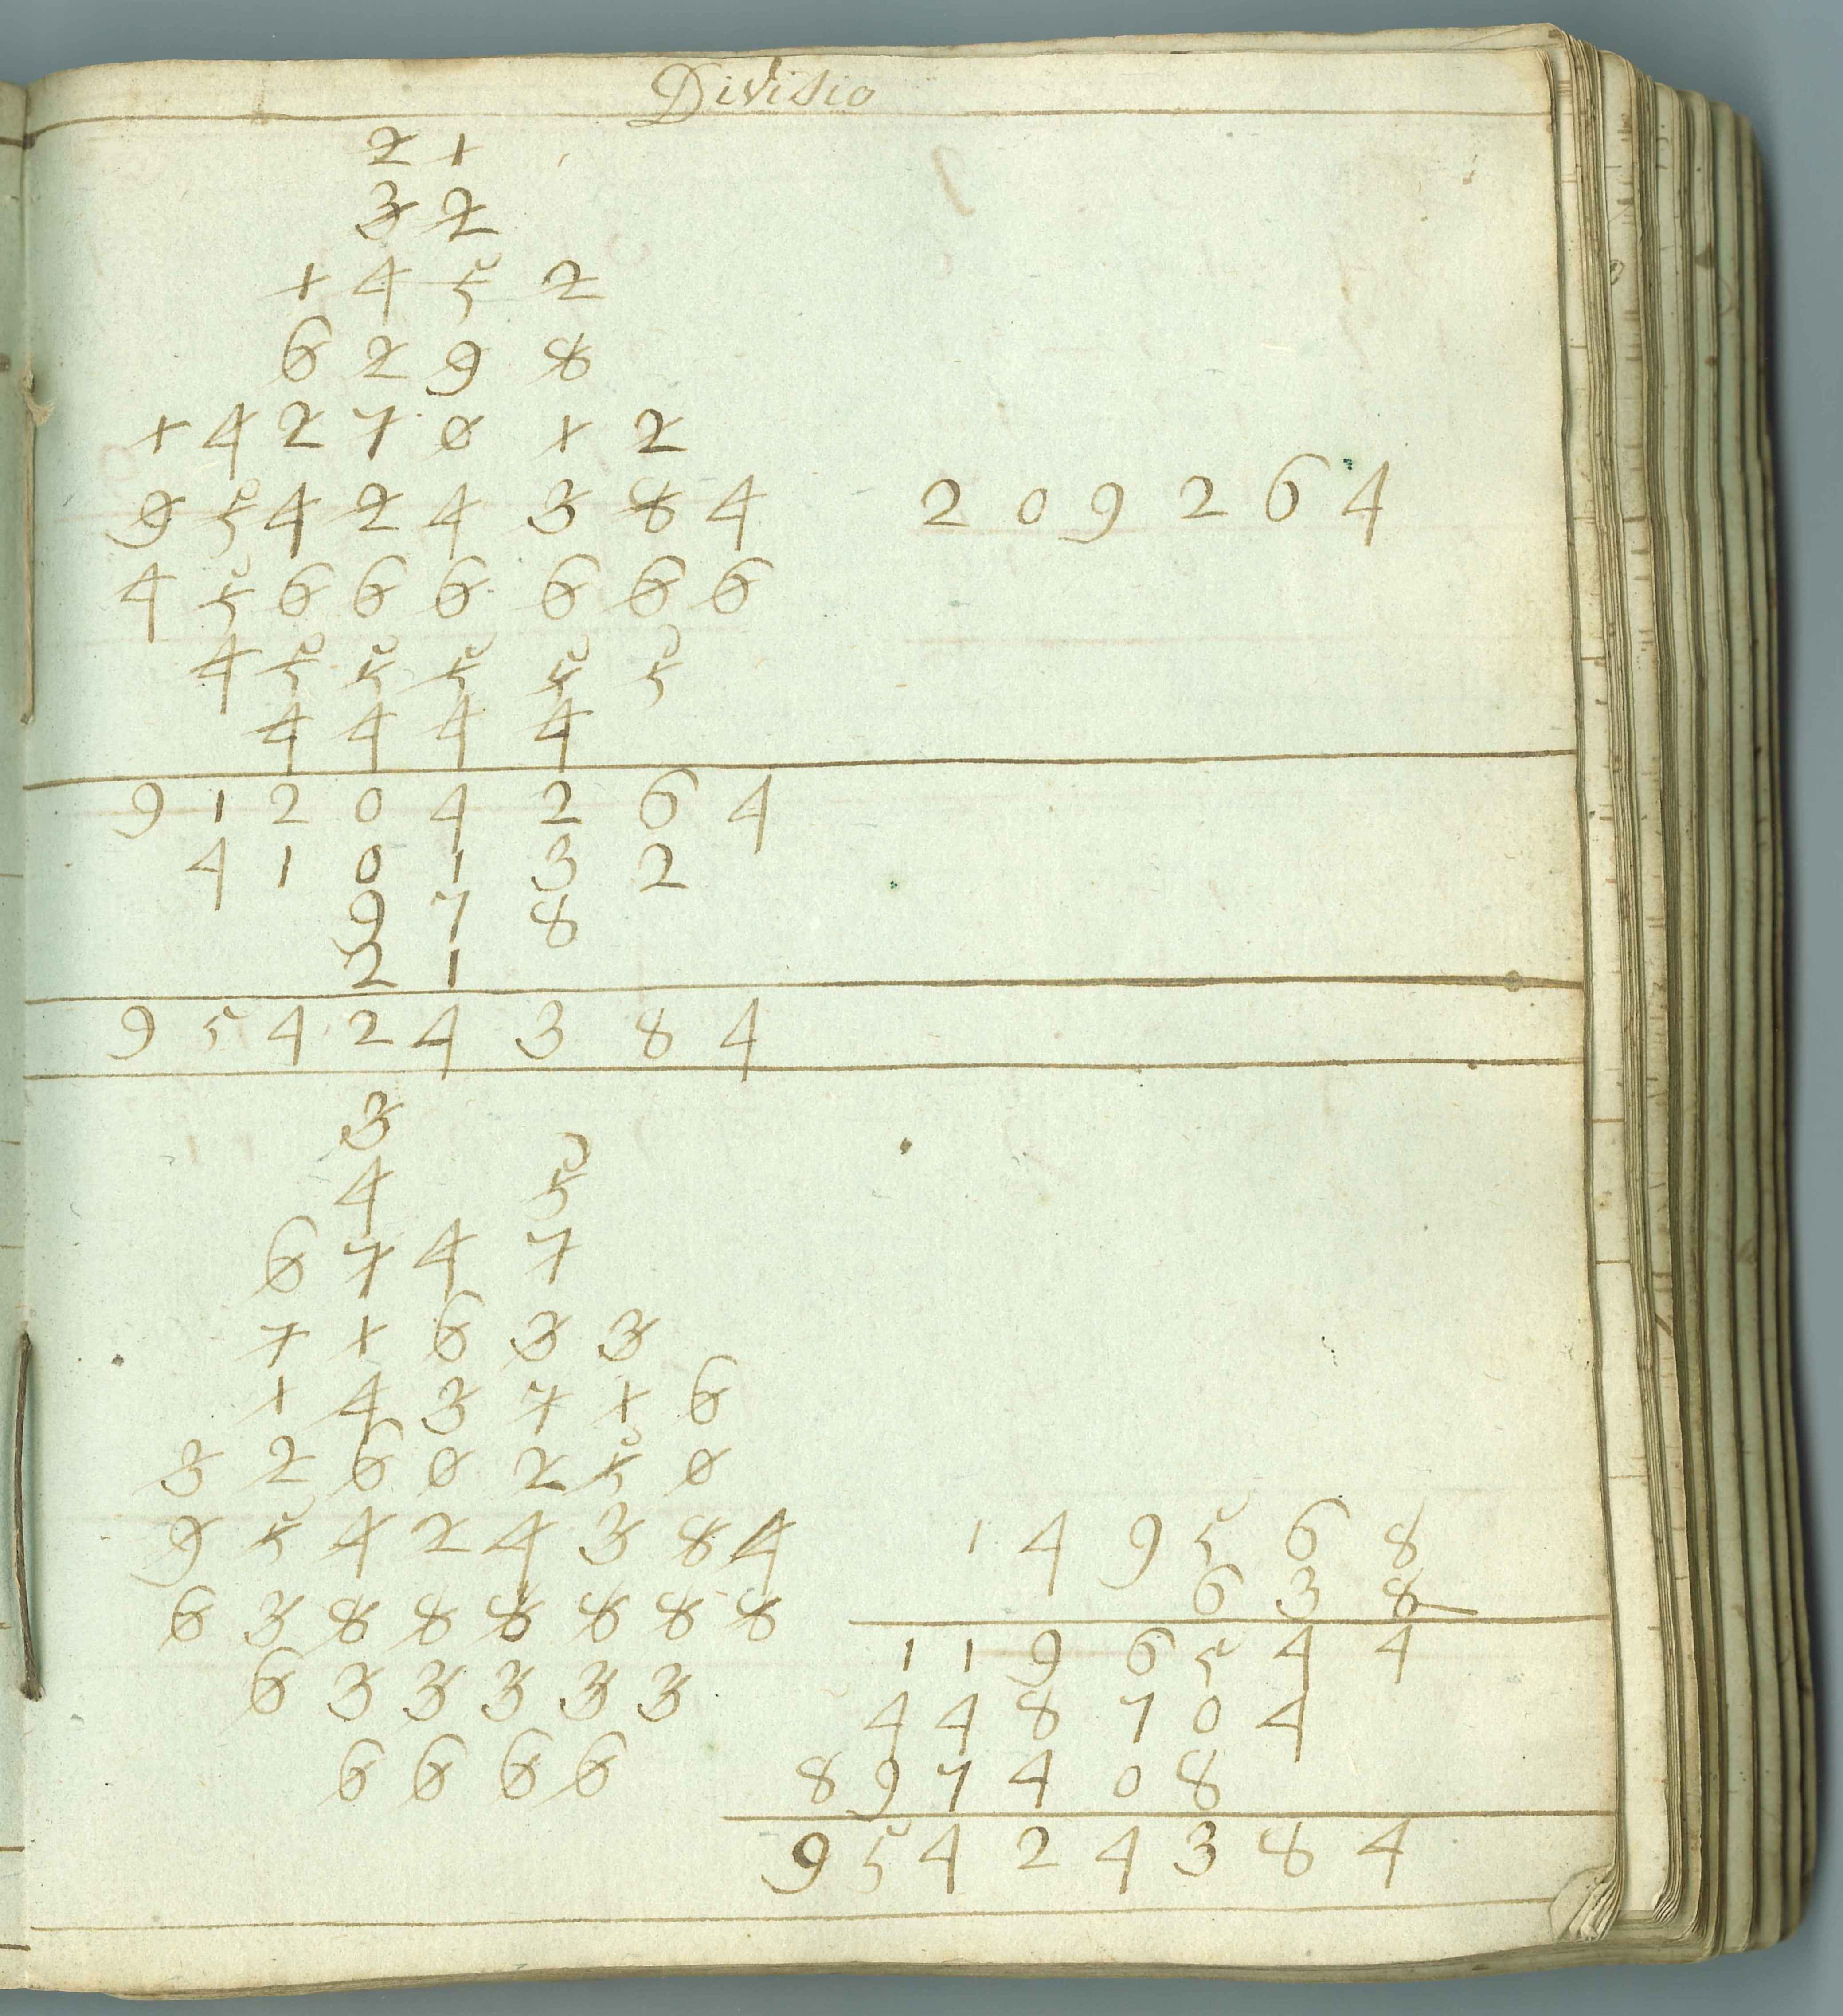 Divisio
2 1
3 2
1 4 5 2
6 2 9 8
1 4 2 7 0 1 2
9 5 4 2 4 3 8 4 2 0 9 2 6 4
4 5 6 6 6 6 6 6
4 5 5 5 5 5
4 4 4 4
9 1 2 0 4 2 6 4
4 1 0 1 3 2
9 7 8
2 1
9 5 4 2 4 3 8 4
3
4 5
6 7 4 7
7 1 6 3 3
1 4 3 7 1 6
3 2 6 0 2 5 0
9 5 4 2 4 3 8 4 1 4 9 5 6 8
6 3 8 8 8 8 8 8 6 3 8
6 3 3 3 3 3 1 1 9 6 5 4 4
4 4 8 7 0 4
6 6 6 6 8 9 7 4 0 8
9 5 4 2 4 3 8 4